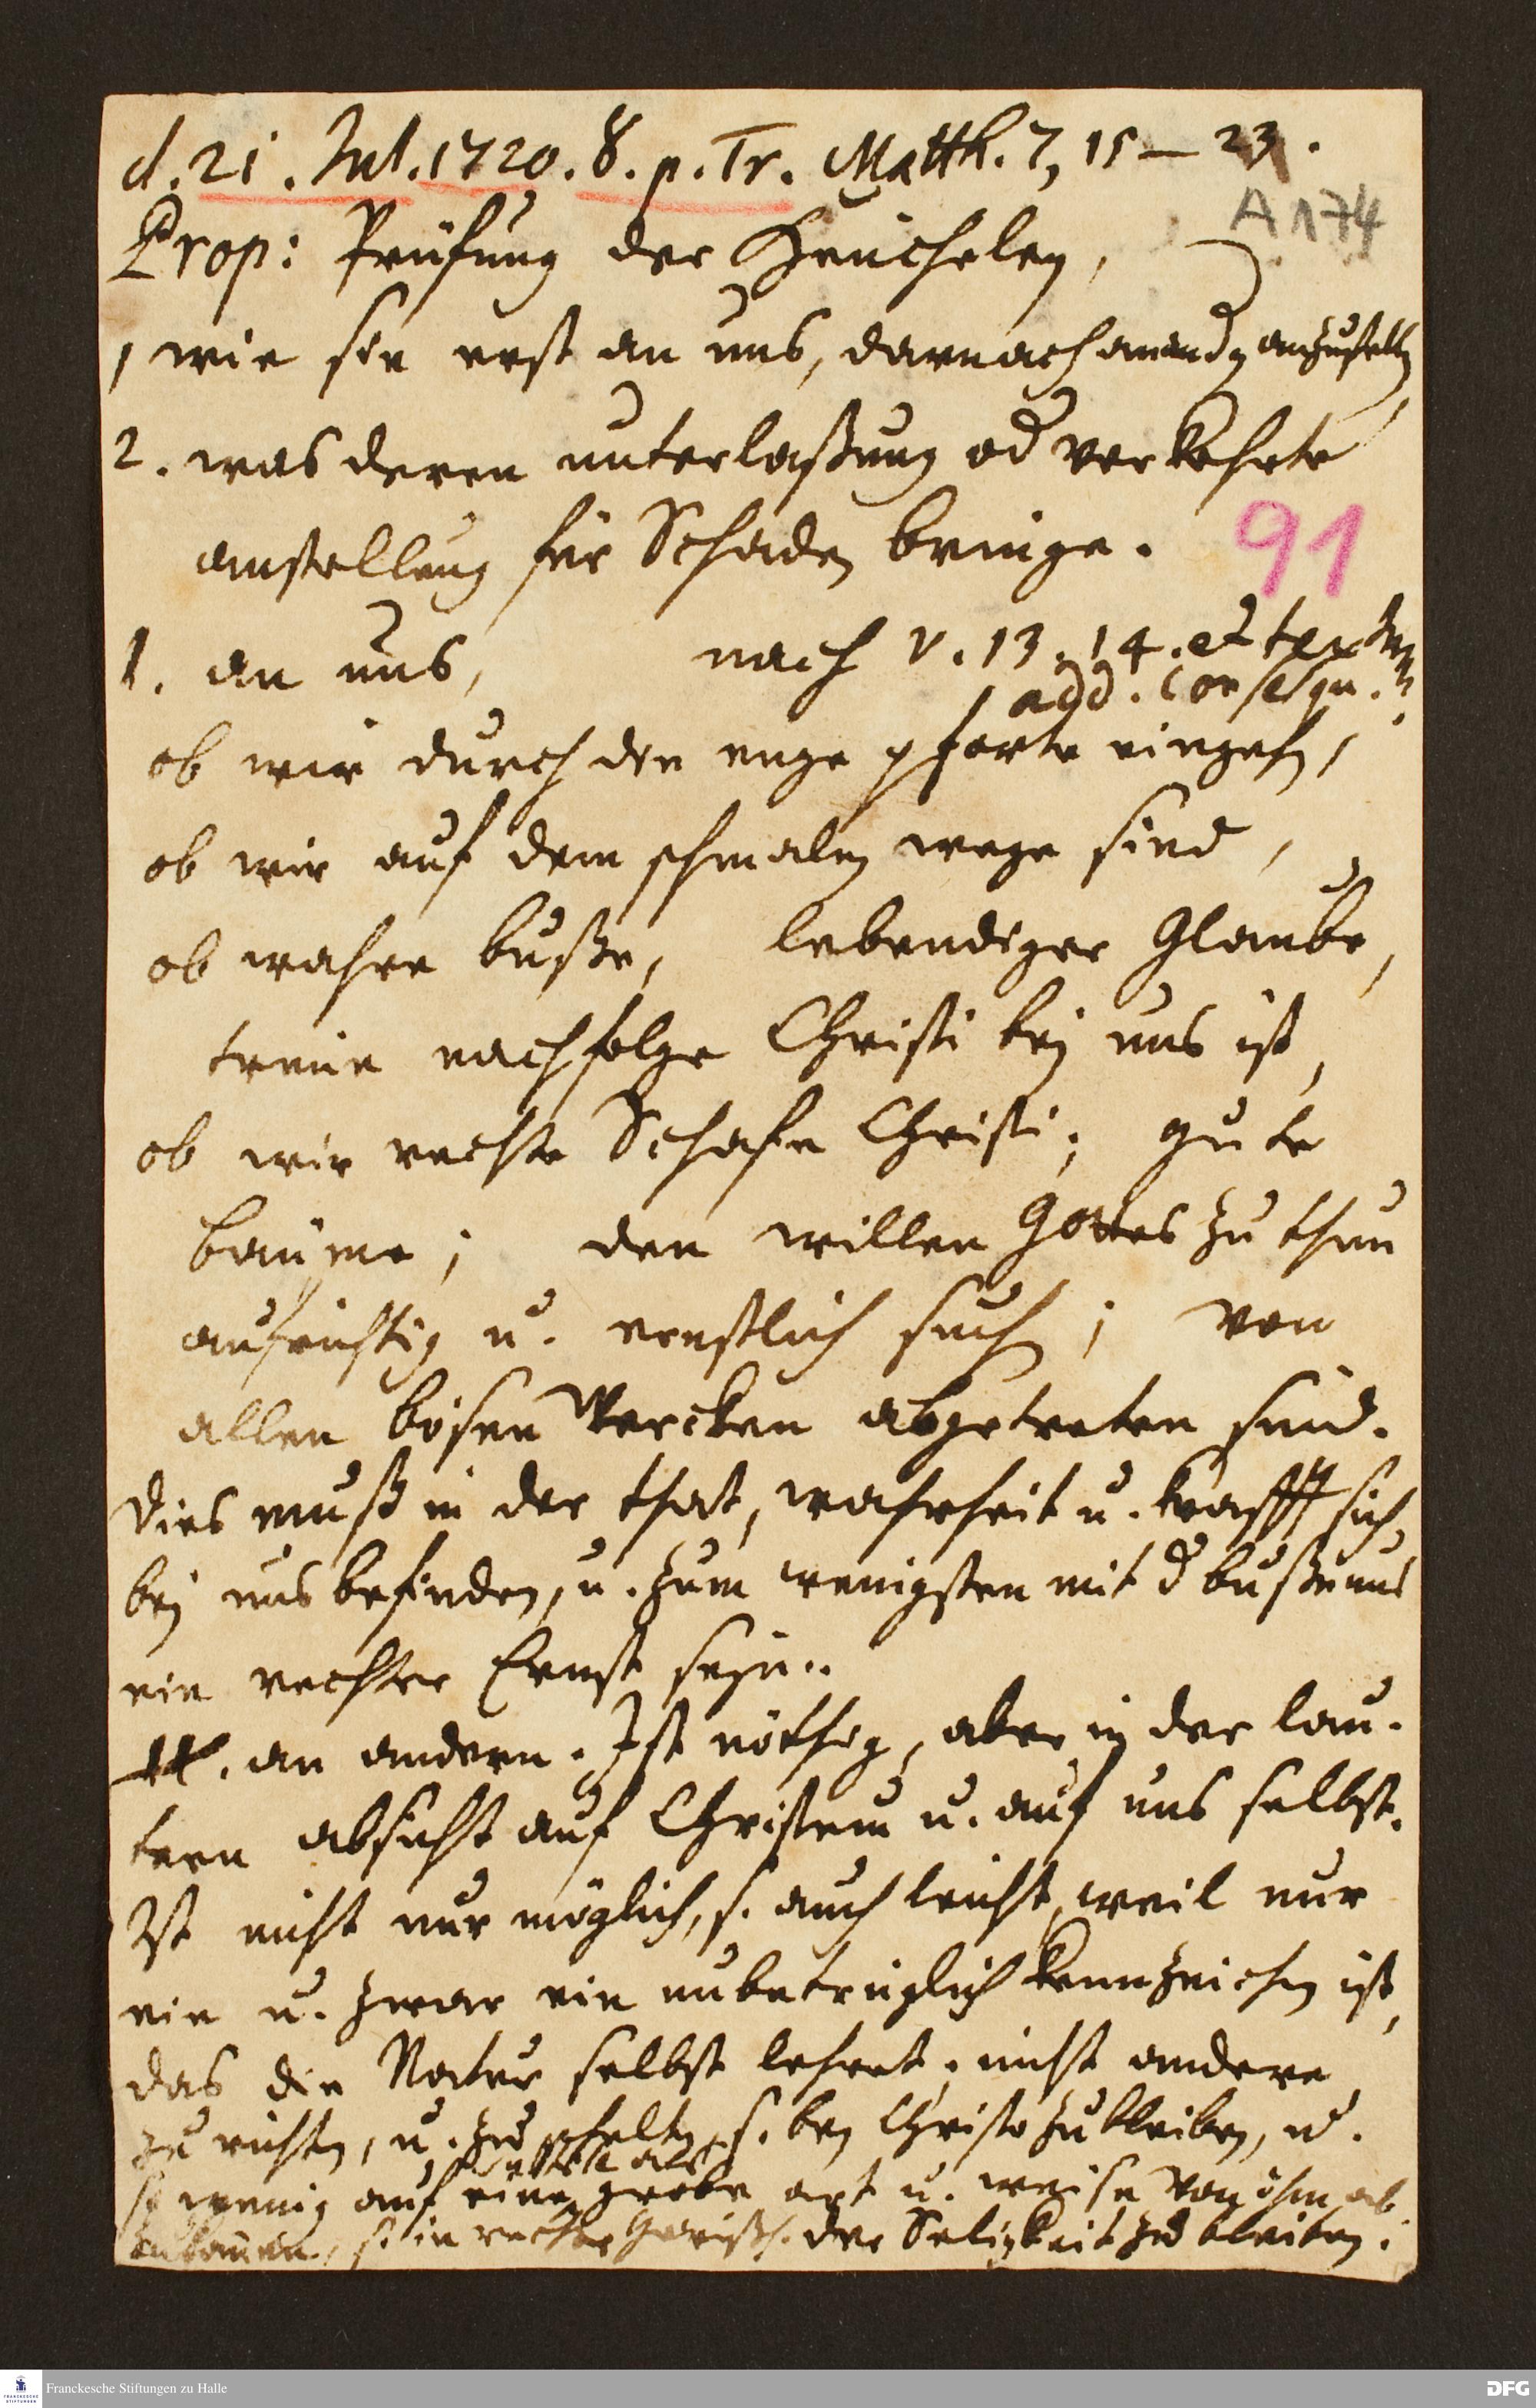 d. 21. Jul. 1720. 8. p. Tr. Matth. 7, 15–23.
A 174
Prop: Prüfung der Heucheley,
1 wie sie erst an uns, darnach an andn anzustelln
2. was deren unterlaßung od verkehrte
anstellung für Schaden bringe.
91
1. an uns, nach v. 13. 14. et textum
add. consequ.
ob wir durch die enge pforte eingehn,
ob wir auf dem schmalen wege sind,
ob wahre buße, lebendiger Glaube,
treue nachfolge Christi bey uns ist,
ob wir rechte Schafe Christi; gute
bäume; den willen Gottes zu thun
aufrichtig u. ernstlich suchen; von
allen bösen Wercken abgetreten sind.
Dies muß in der that, wahrheit u. krafft sich
bey uns befinden, u. zum wenigsten mit d buße uns
ein rechter Ernst seyn.
II. an andern. Ist nöthig, aber in der lau-
tern absicht auf Christum u. auf uns selbst.
Ist nicht nur möglich, s. auch leicht, weil nur
ein u. zwar ein unbetrüglich kennzeichen ist,
das die Natur selbst lehret; nicht andere
zu richten, u. zu schelten, s. bey Christo zu bleiben, u.
so wenig auf eine grobe art u. weise von ihm ab
zu in rechter der Seligkeit zu bleiben.
Franckesche Stiftungen zu Halle
DFG